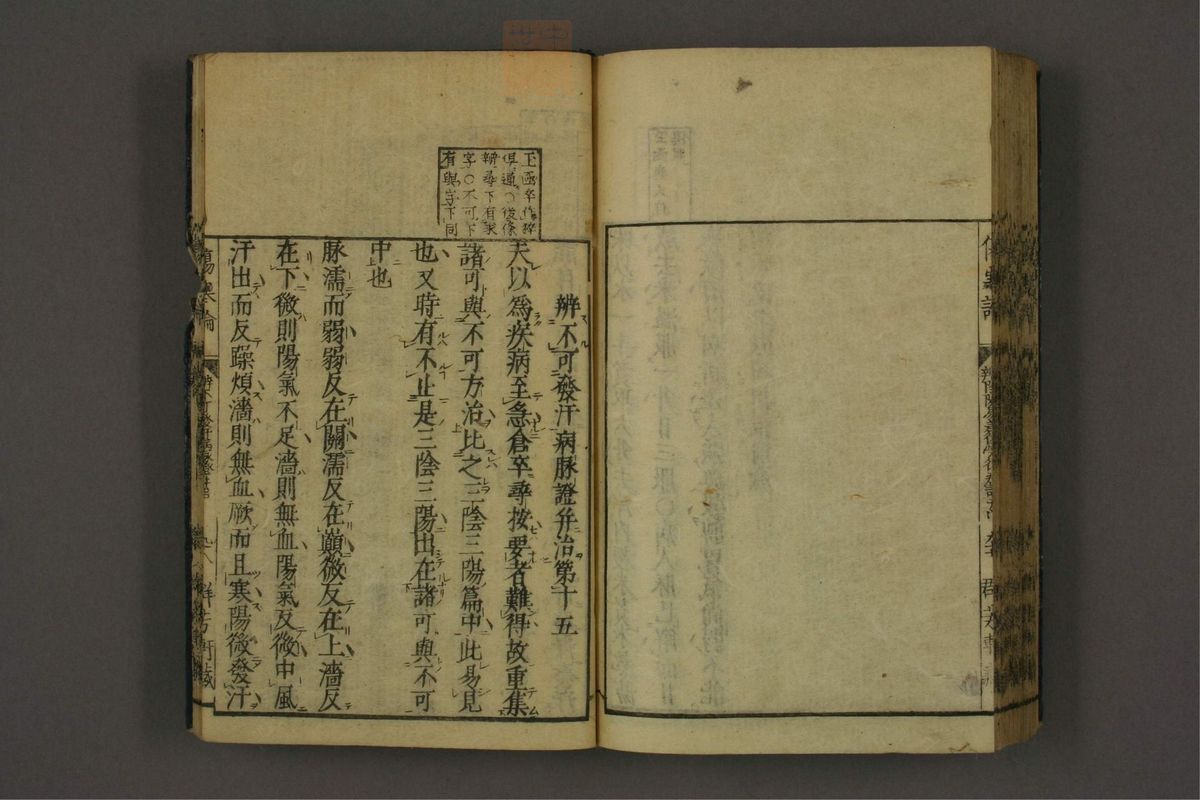 傷寒論
群芳軒藏
玉函卒作猝
俱通○後條
辨尋下有求
字○不可下
有與字下同
辨不可發汗病脉證并治第十五
夫以爲疾病至急倉卒尋按要者難得故重集
諸可與不可方治比之三陰三陽篇中此易見
也又時有不止是三陰三陽出在諸可與不可
中也
脉濡而弱弱反在關濡反在巔微反在上濇反
在下微則陽氣不足濇則無血陽氣反微中風
汗出而反躁煩濇則無血厥而且寒陽微發汗
傷寒論
辨不可發汗病脉證并治
群芳軒藏